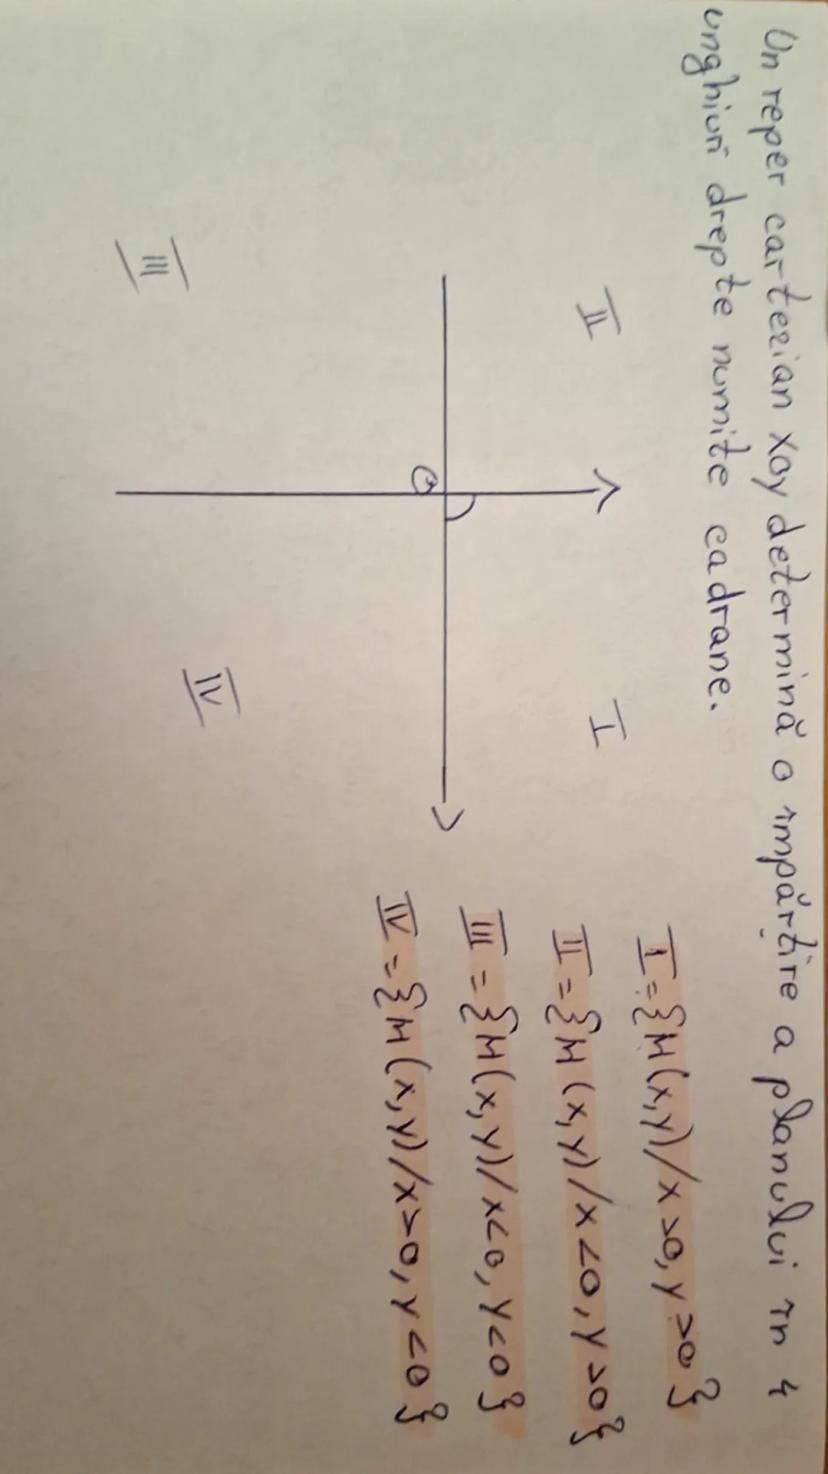 Un reper cartezian xoy determină o împărțire a planului în 4
unghiuri drepte numite cadrane.
II
I
O
III
IV
I = {M(x,y)/x>0, y>0}
II = {M(x,y)/x<0, y>0}
III = {M(x,y)/x<0, y<0}
IV = {M(x,y)/x>0, y<0}